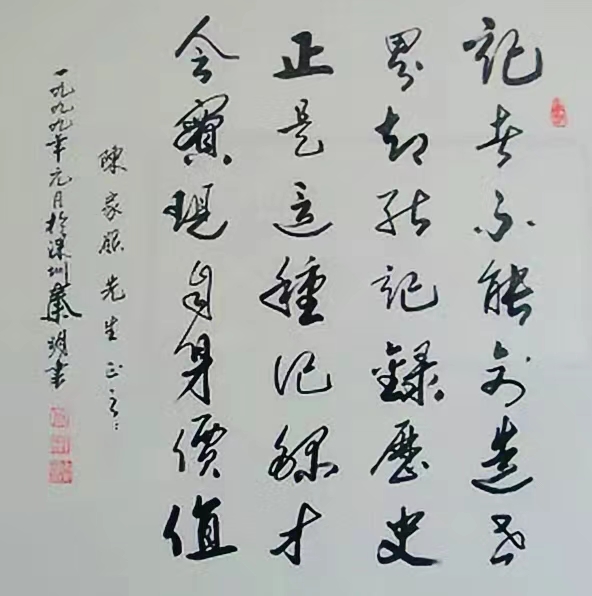 記者不能創造世
界却能記錄歷史
正是這種記錄才
會實現自身價值
陳家先生正之
一九九九年元月於深圳秦明書